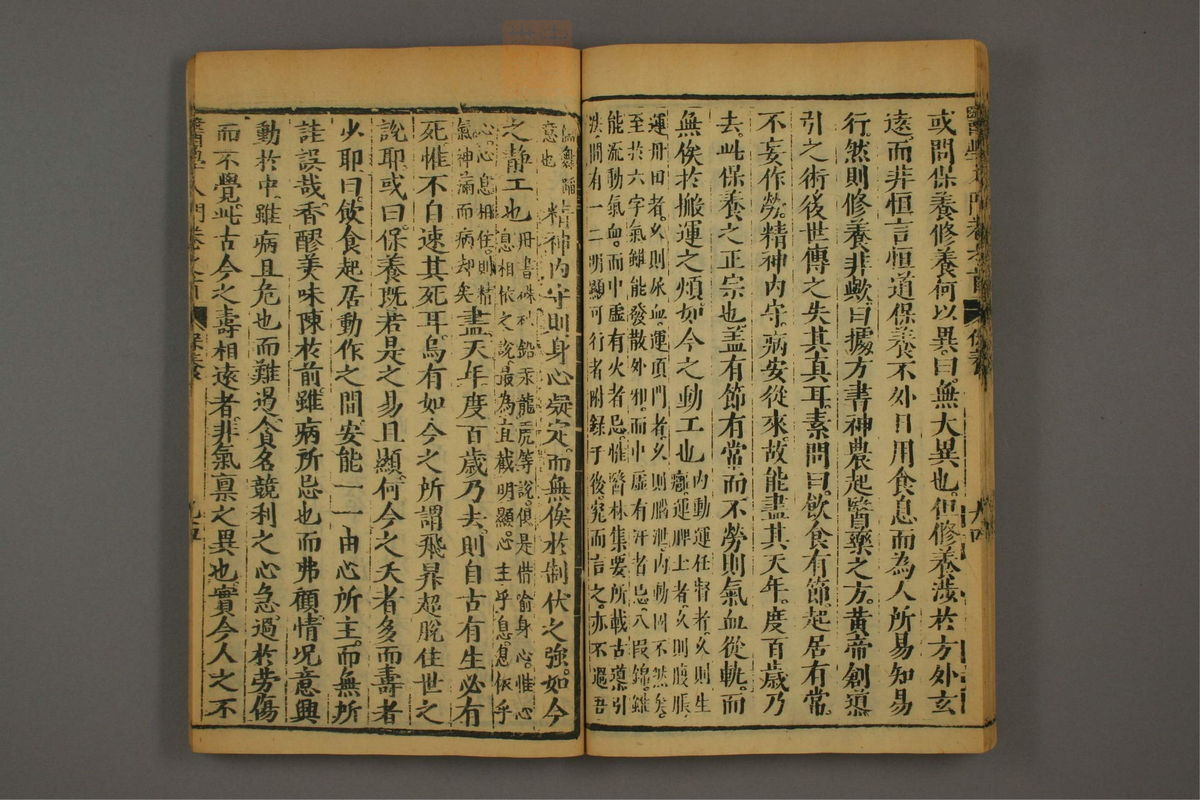 或問保養修養何以異。曰。無大異也。但修養涉於方外玄
遠。而非恒言恒道。保養不外日用食息。而為人所易知易
行。然則修養非歟。曰。據方書。神農起醫藥之方。黃帝創導
引之術。後世傳之失其真耳。素問曰。飲食有節。起居有常。
不妄作勞。精神內守。病安從來。故能盡其天年。度百歲乃
去。此保養之正宗也。蓋有節有常而不勞。則氣血從軌。而
無俟於搬運之煩。如今之動工也
內動運任督者。久則生
癰。運脾土者。久則腹脹。
運丹田者。久則尿血。運頂門者。久則腦泄。內動固不然矣。
至於六字氣。雖能發散外邪。而中虛有汗者忌。八段錦。雖
能流動氣血。而中虛有火者忌。惟醫林集要所載古導引
法。間有一二明顯可行者。附錄于後。究而言之。亦不過吾
意也
精神內守。則身心凝定。而無俟於制伏之強。如今
之靜工也
丹書硃砂鉛汞龍虎等說。俱是借喻身心。惟心
息相依之說。最為直截明顯。心主乎息。息依乎
心。心息相依。則精
氣神滿而病却矣
盡天年度百歲乃去。則自古有生必有
死。惟不自速其死耳。烏有如今之所謂飛昇超脫住世之
說耶。或曰。保養既若是之易且顯。何今之夭者多而壽者
少耶。曰。飲食起居動作之間。安能一一由心所主。而無所
註誤哉。香醪美味陳於前。雖病所忌也而弗顧。情況意興
動於中。雖病且危也而難遏。貪名競利之心急。過於勞傷
而不覺。此古今之壽相遠者。非氣稟之異也。實今人之不
醫學入門卷之首
保養
九十四